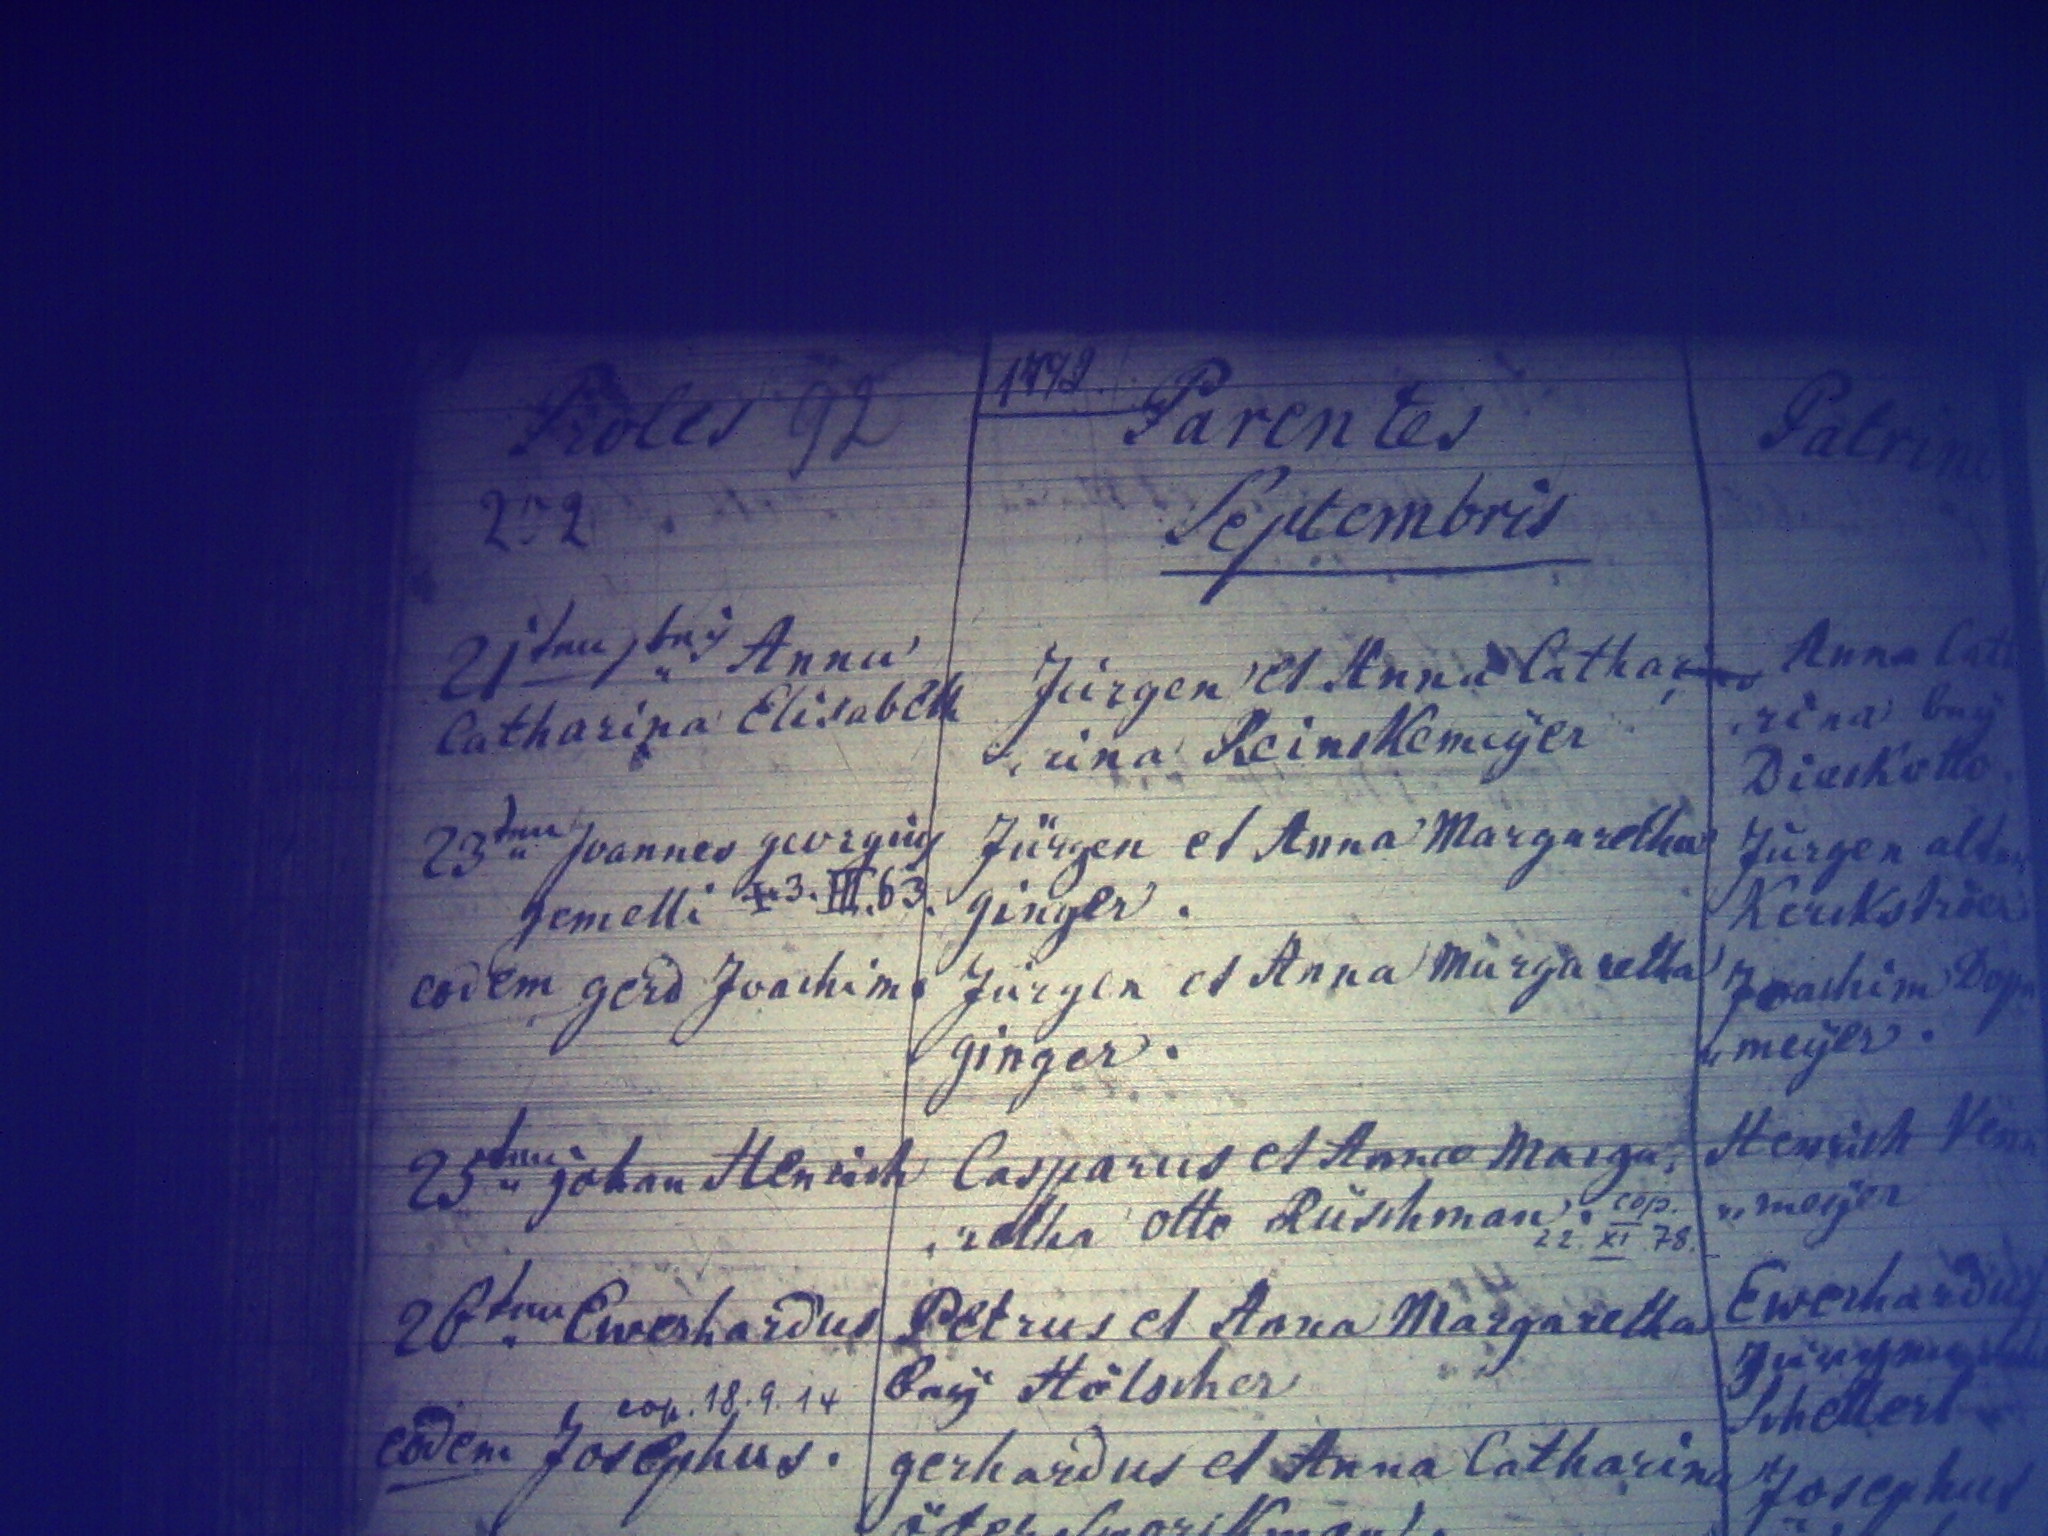 Proles 92
1792. Parentes
Patrini
252
Septembris
21 Anna
Catharina Elisabeth
Jürgen et Anna Catha
rina Reinskemeÿer
Anna Cat
rina beÿ
23 Joannes georgius
gemelli 3. III. 63.
Jürgen et Anna Margaretha
ginger.
Jürgen
eodem gerd Joachim
Jürgen et Anna Margaretha
ginger.
Joachim
meÿer.
25 johan Henrich
Casparus et Anna Marga
retha otto Rüschman. cop.
22. XI. 78.
Henrich
meÿer
26 Ewerhardus
Petrus et Anna Margaretha
beÿ Hölscher
Ewerhardus
cop. 18.9.14
eodem Josephus.
gerhardus et Anna Catharina
Josephus